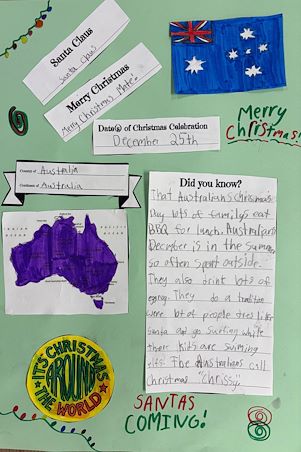 Santa Claus
Santa Claus
Merry Christmas
Merry Christmas Mate!
Date(s) of Christmas Celebration
December 25th
Merry
Christmas!
Country of Australia
Continent of Australia
Did you know?
That Australians Christmas
Day lots of family's eat
BBQ for lunch. Australians
December is in the summer
so often spent outside.
They also drink lots of
They do a tradition
were lot of people dress like
Santa and go surfing while
there kids are swiming
The Australians call
Christmas "Chrissy
IT'S CHRISTMAS
AROUND
THE WORLD
SANTAS
COMING!